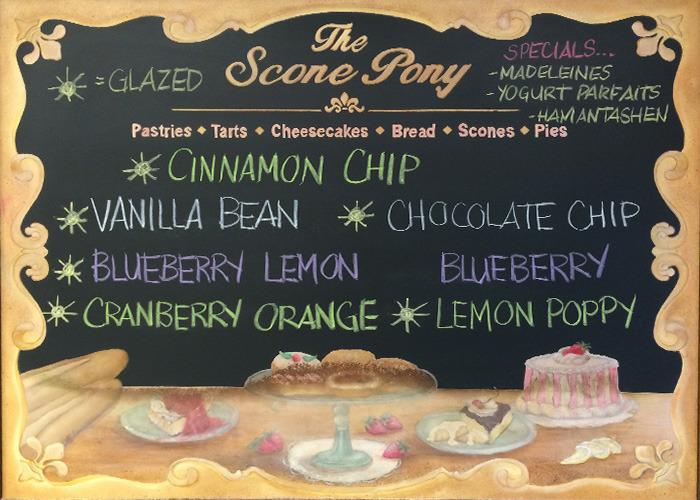 The
Scone Pony
= GLAZED
SPECIALS...
- MADELEINES
- YOGURT PARFAITS
- HAMANTASHEN
Pastries ◆ Tarts ◆ Cheesecakes ◆ Bread ◆ Scones ◆ Pies
CINNAMON CHIP
VANILLA BEAN CHOCOLATE CHIP
BLUEBERRY LEMON BLUEBERRY
CRANBERRY ORANGE LEMON POPPY